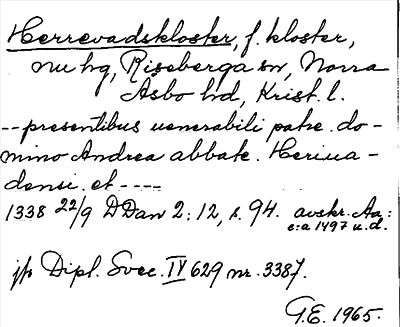 Herrevadskloster, f. kloster,
nu hg, Riseberga sn, Norra
Åsbo hd, Krist. l.
-- presentibus uenerabili patre. do-
mino Andrea abbate. Heriua-
densi. et ----
1338 22/9 DDan 2:12, s. 94. avskr. Aa:
c:a 1497 u.d.
jfr Dipl. Svec. IV 629 nr. 3387.
G.E. 1965.